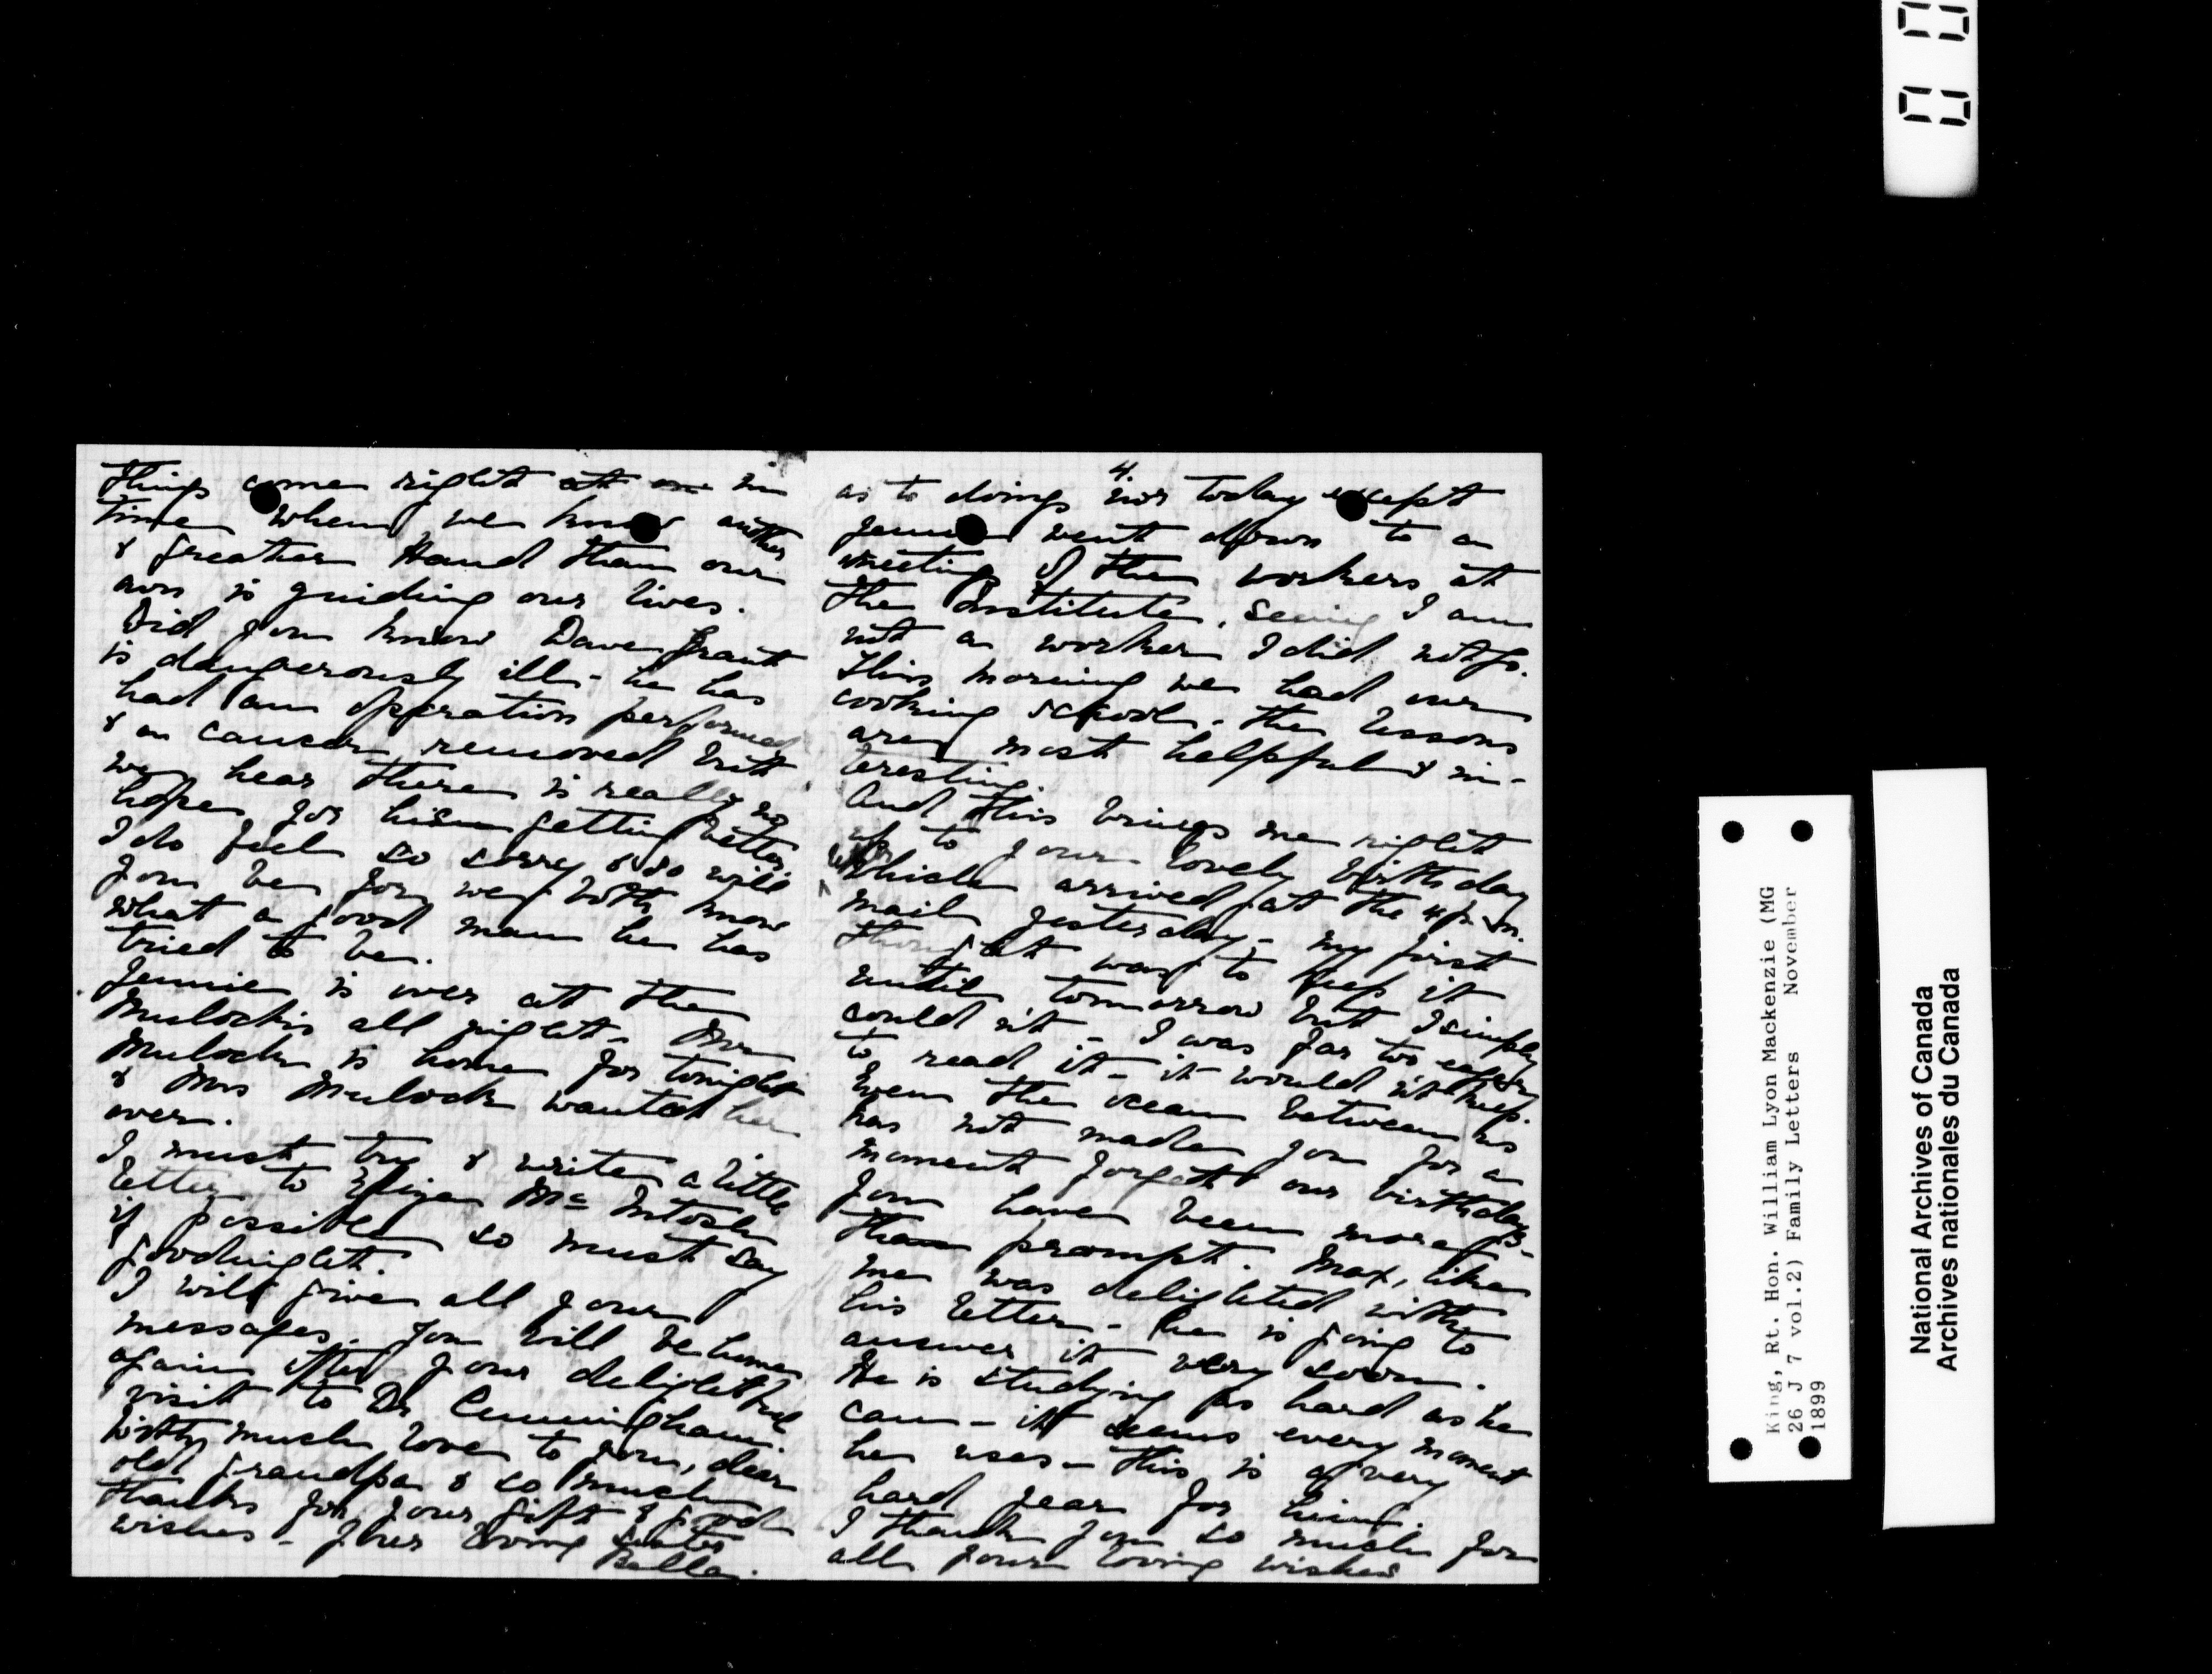 things come right at one in
time when we know another
& greater Hand than our
own is guiding our lives.
Did you know Dave Grant
is dangerously ill - he has
had an operation performed
& a cancer removed but
we hear there is really no
hope for him getting better
I do feel so sorry & so will
you be for we both know
what a good man he has
tried to be.
Jennie is over at the
Mulock's all night - Mr
Mulock is home for tonight
& Mrs Mulock wanted her
over.
I must try & write a little
letter to Eliza McIntosh
if possible so must say
goodnight.
I will give all your
messages. You will be home
again after your delightful
visit to Dr Cunningham.
With much love to you, dear
old grandpa & so much
thanks for your gift & good
wishes - Your loving sister
Bella.
4.
as to doings nor today except
Jennie went down to a
meeting of the workers at
the Institute. Seeing I am
not a worker I did not go.
This morning we had our
cooking school. The lessons
are most helpful & in-
teresting.
And this brings me right
up to your lovely birthday
letter
which arrived at the 4 p.m.
mail yesterday - my first
thought was to keep it
until tomorrow but I simply
could n't - I was far too eager
to read it - it would n't keep.
Even the ocean between us
has not made you for a
moment forget our birthdays -
You have been more
than prompt. Max, like
me was delighted with
his letter - he is going to
answer it very soon.
He is studying as hard as he
can - it seems every moment
he uses - this is a very
hard year for him.
I thank you so much for
all your loving wishes
King, Rt. Hon. William Lyon Mackenzie (MG
26 J 7 vol.2) Family Letters November
1899
National Archives of Canada
Archives nationales du Canada